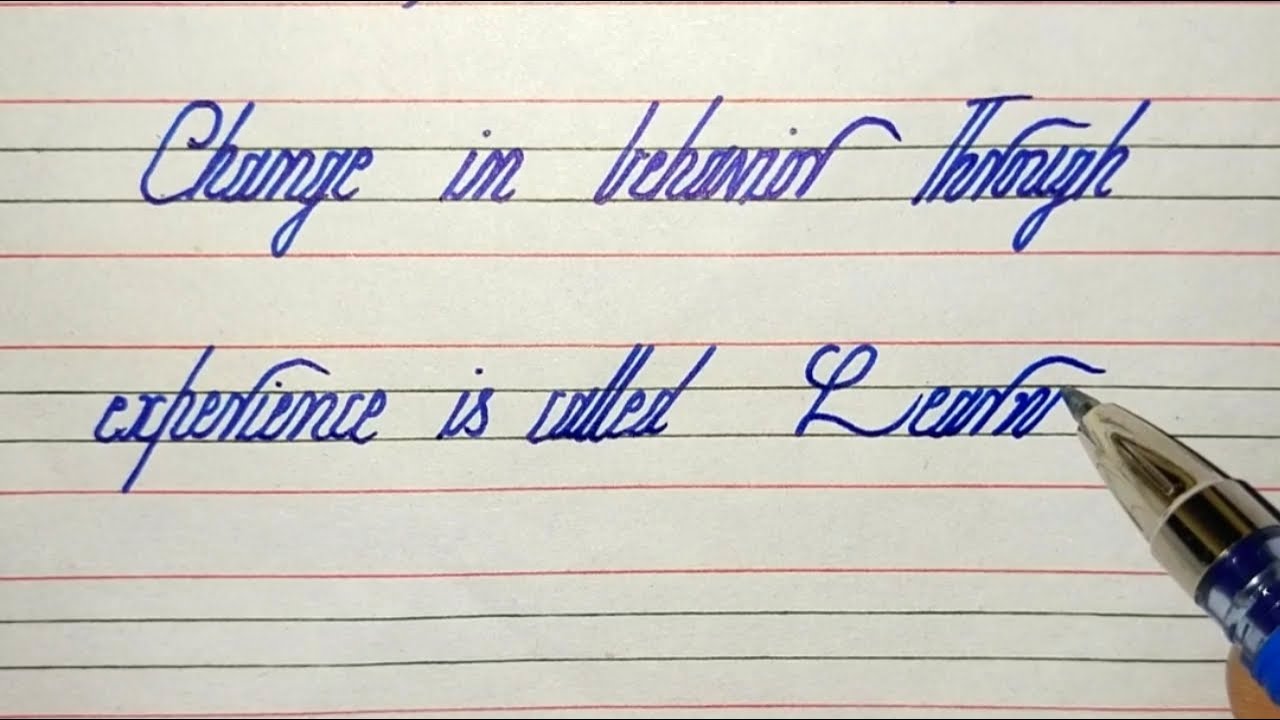 Change in behavior Through
experience is called Learn